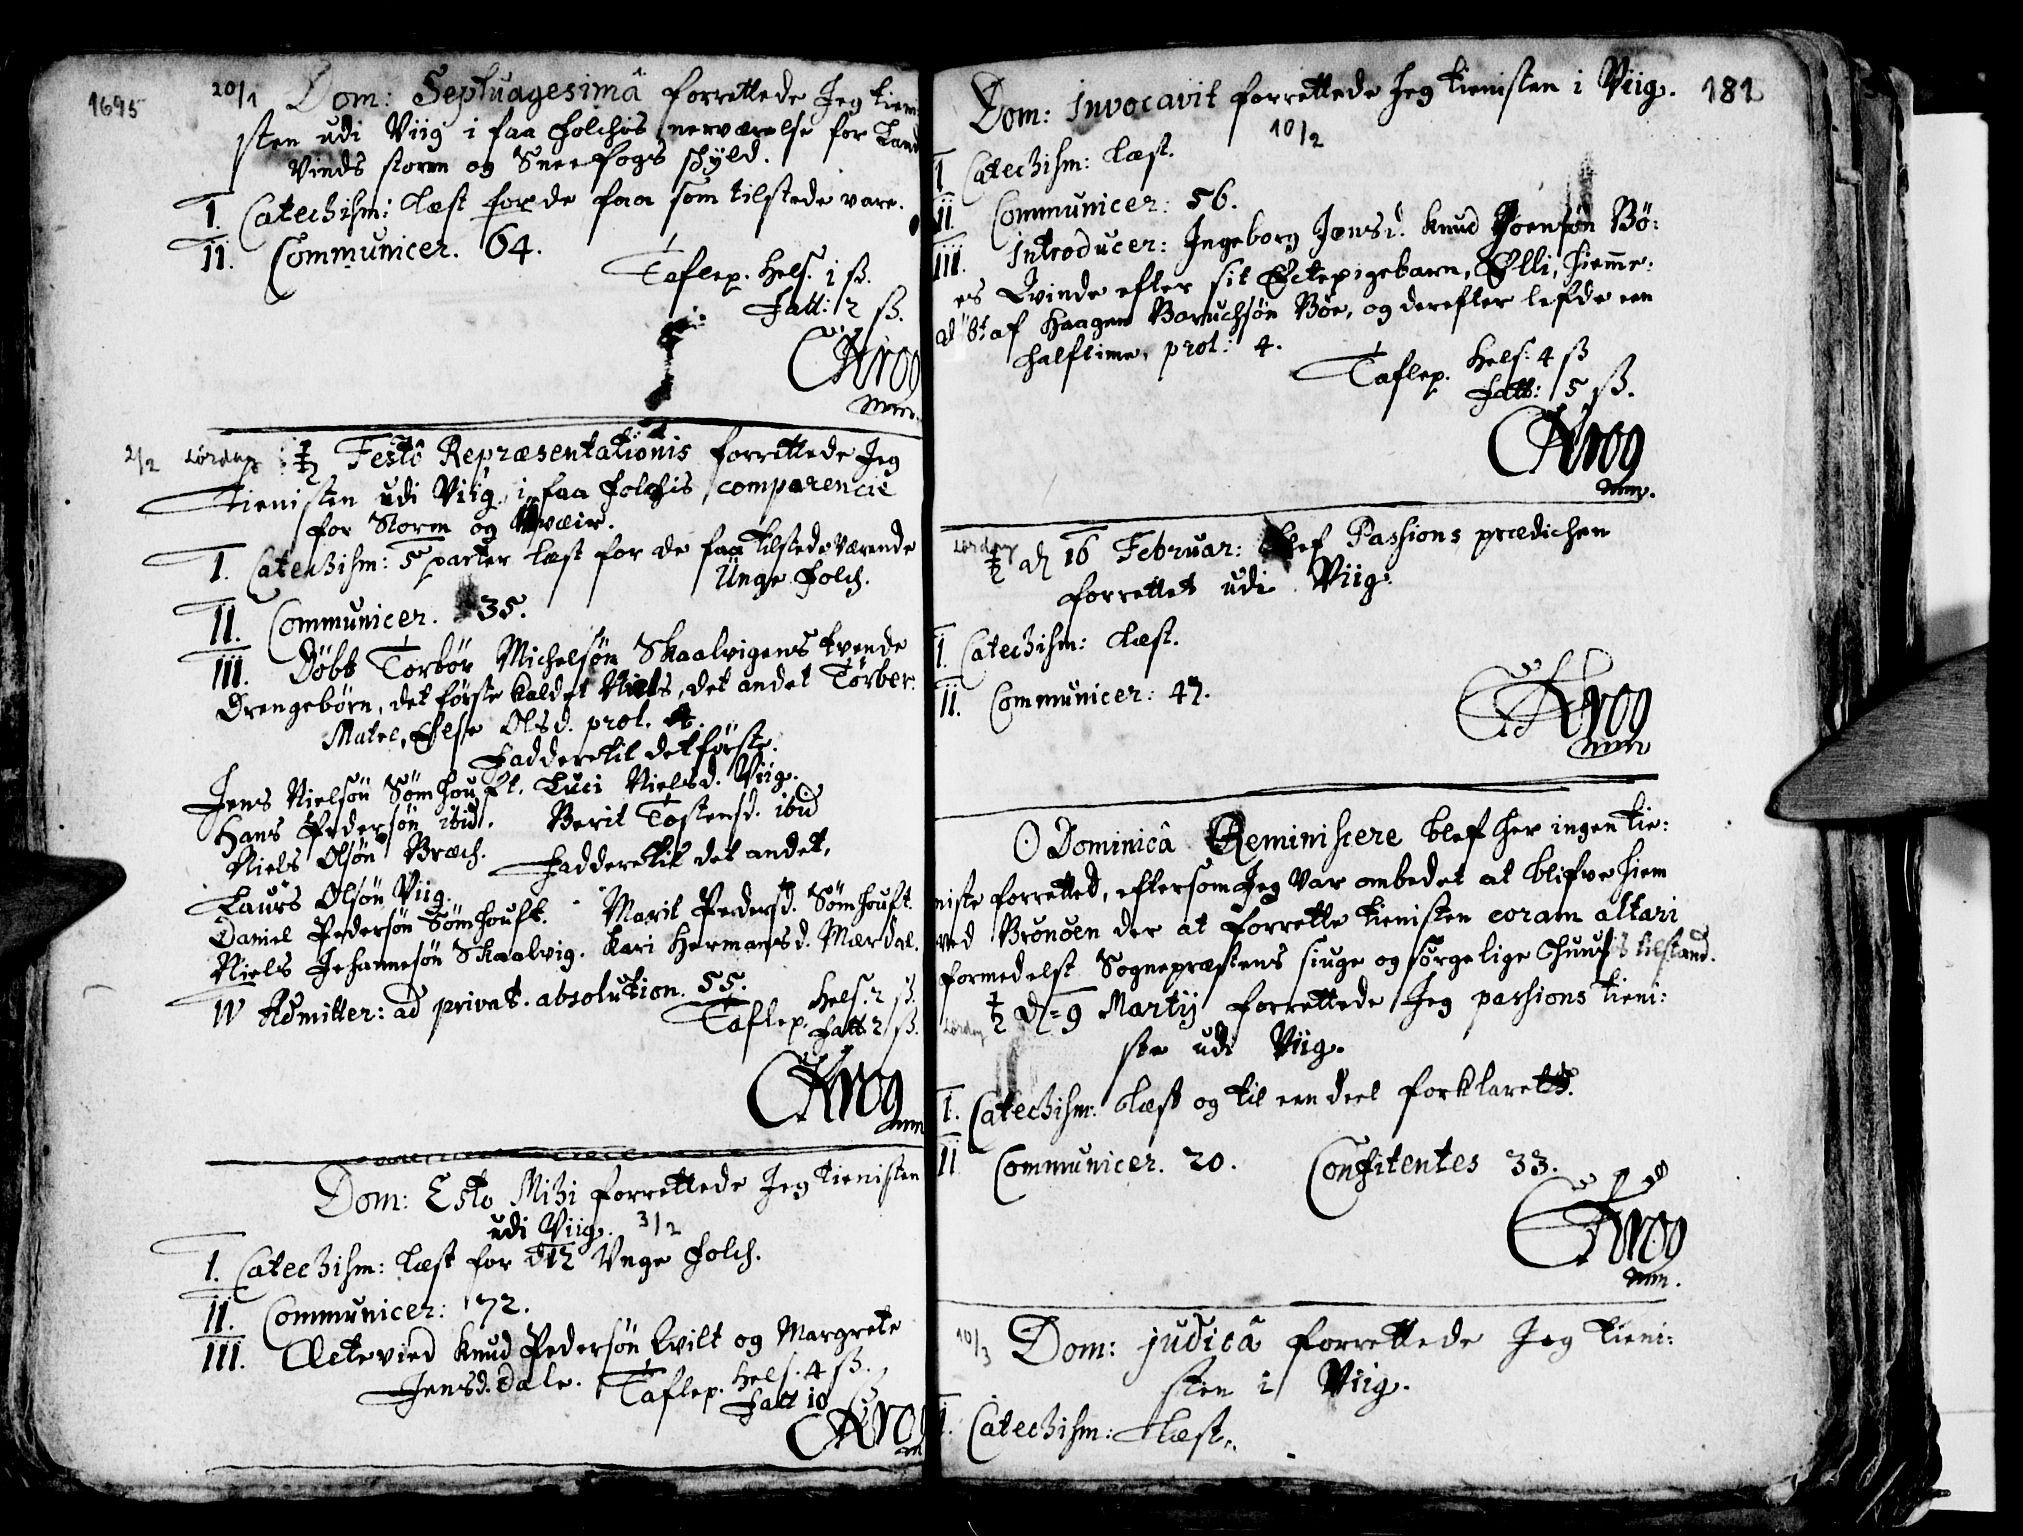 1695
20/1 Dom: Septuagesimâ forrettede Jeg tiene
sten udi Viig i faa folchis nerværelse for Land
Vinds storm og Sneefogs skyld.
I. Catechism: læst for de faa som tilstede vare.
II. Communicer. 64.
Taflep. Hels. 1 ß.
Fatt: 2 ß.
CKrog
mm.
2/2 Lørdag ♄ Festô Repræsentationis forrettede Jeg
Tienisten udi Viig, i faa folchis comparencie
for Storm og Uvæir.
I. Catechism: 5 parter læst for de faa tilstedeværende
Unge Folch.
II. Communicer. 35.
III. Döbt Torbör Michelsön Skaalvigens tvende
Drengebörn, det förste kaldet Niels, det andet Törber.
Mater, Else Olsd. prol. 4.
Faddere til det förste.
Jens Nielsön Sömhouft. Luci Nielsd. Viig.
Hans Pedersön ibid. Berit Tostensd. ibid
Niels Olsön Bræch.
Faddere til det andet,
Laurs Olsön Viig.
Daniel Pedersön Sömhouft. Marit Pedersd. Sömhouft.
Niels Johannesön Skaalvig. Kari Hermansd. Mærdal.
IV Admitter: ad privat. absolution. 55.
Taflep. Hels: 2 ß.
Fatt 2 ß.
CKrog
mm
Dom: Esto Mihi forrettede Jeg tienisten
udi Viig. 3/2
I. Catechism: læst for 12 Unge Folch.
II. Communicer: 72.
III. Æctevied Knud Pedersön Qvilt og Margrete
Jensd. Dale. Taflep. Hels. 4 ß.
Fatt 10 ß
CKrog
m
181
Dom: Invocavit forrettede Jeg tienisten i Viig.
10/2
I Catechism: læst.
II Communicer: 56.
III. Introducer: Ingeborg Jensd. Knud Joensön Bö:
es Qvinde efter sit Ectepigebarn, Elli, hiemme:
döbt af Haagen Baruchsön Böe, og derefter lefde een
halftime, prol: 4.
Taflep. Hels: 4 ß
Fatt: 5 ß.
CKrog
mm.
Lørdag ♄ d 16 Februar: blef Passions prædichen
forrettet udi Viig.
I. Catechism: læst.
II. Communicer: 47.
CKrog
mm
☉ Dominicâ Reminiscere blef her ingen tie:
niste forretted, eftersom Jeg var ombedet at blifve hiem
ved Brönöen der at forrette tienisten coram altari
formedelst Sognepræstens siuge og sörgelige Huusis tilstand.
Lørdag ♄ d. 9 Martij forrettede Jeg passions tieni:
ste udi Viig.
I. Catechism: læst og til een deel forklaret.
II Communicer. 20. Confitentes 33.
CKrog
mm.
10/3 Dom: judicâ forrettede Jeg tieni:
sten i Viig.
I. Catechism: Læst.